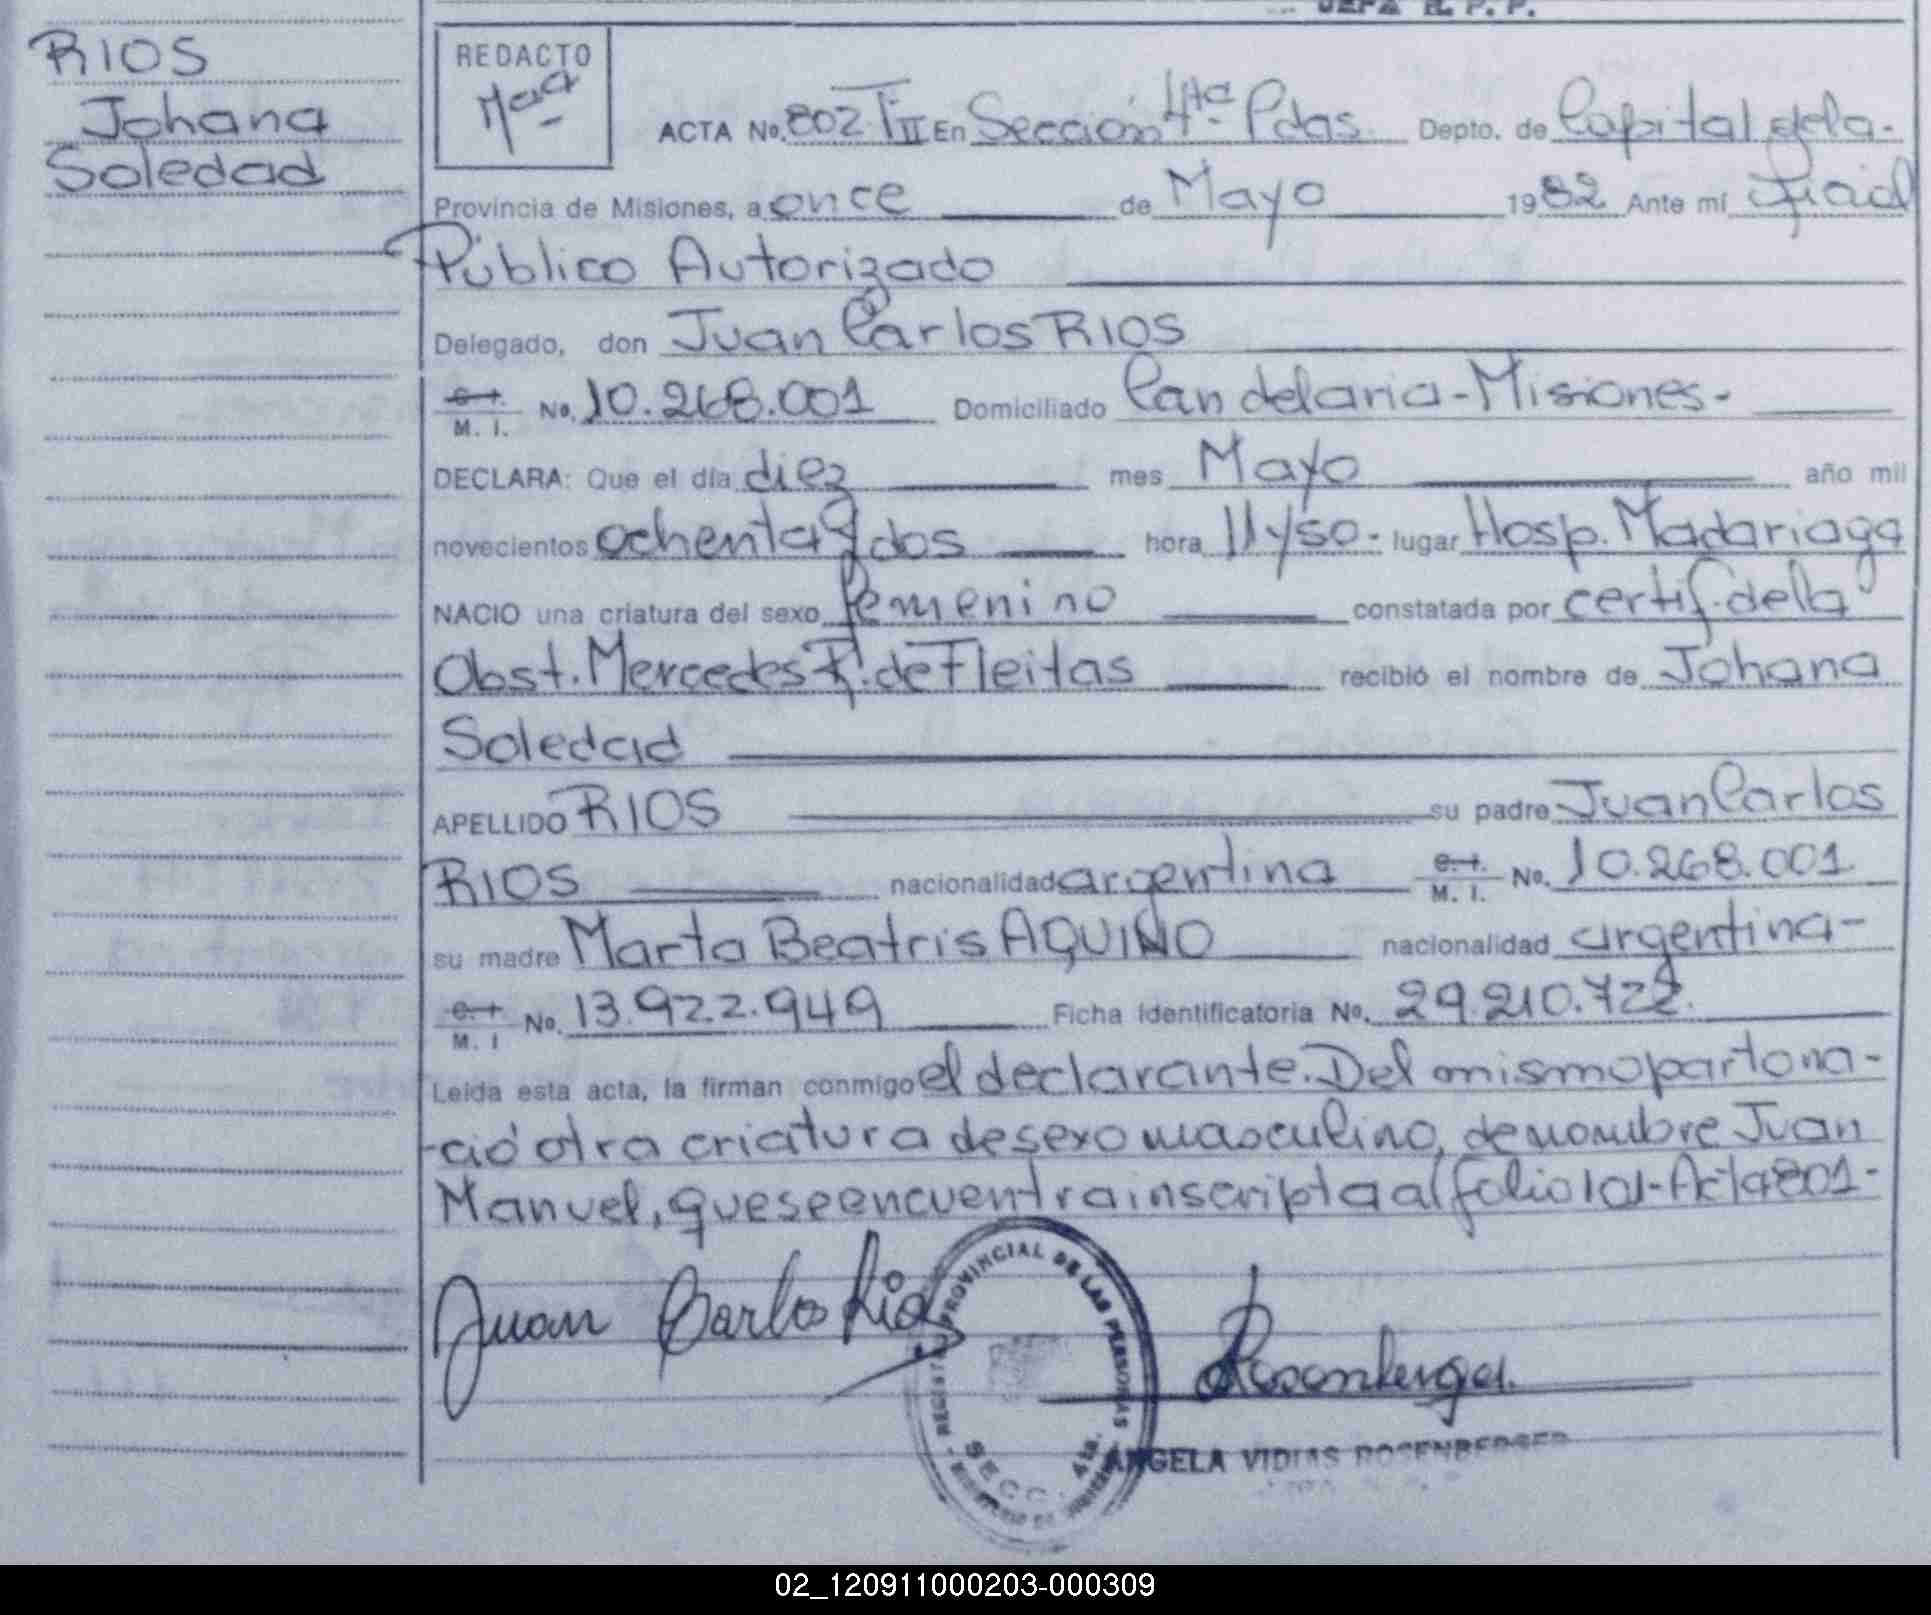 JEFA R. P. P.
RIOS
Johana
Soledad
REDACTO
ACTA No. 802 T II En Sección 4ta Pdas. Depto. de Capital de la.
Provincia de Misiones, a once de Mayo 1982 Ante mí Oficial
Público Autorizado
Delegado, don Juan Carlos RIOS
C. I.
M. I. No. 10.268.001 Domiciliado Candelaria - Misiones.
DECLARA: Que el día diez mes Mayo año mil
novecientos ochenta y dos hora 11 y 50. lugar Hosp. Madariaga
NACIO una criatura del sexo femenino constatada por certif. de la
Obst. Mercedes R. de Fleitas recibió el nombre de Johana
Soledad
APELLIDO RIOS su padre Juan Carlos
RIOS nacionalidad argentina C. I. M. I. No. 10.268.001
su madre Marta Beatris AQUINO nacionalidad argentina-
C. I. M. I No. 13.922.949 Ficha Identificatoria No. 29.210.722.
Leída esta acta, la firman conmigo el declarante. Del mismo parto na-
-ció otra criatura de sexo masculino, de nombre Juan
Manuel, que se encuentra inscripta al folio 101-Acta 801-
Juan Carlos Rios
REGISTRO PROVINCIAL DE LAS PERSONAS
SECC. 4ta.
Rosenberger.
ANGELA VIDIAS ROSENBERGER
02_120911000203-000309